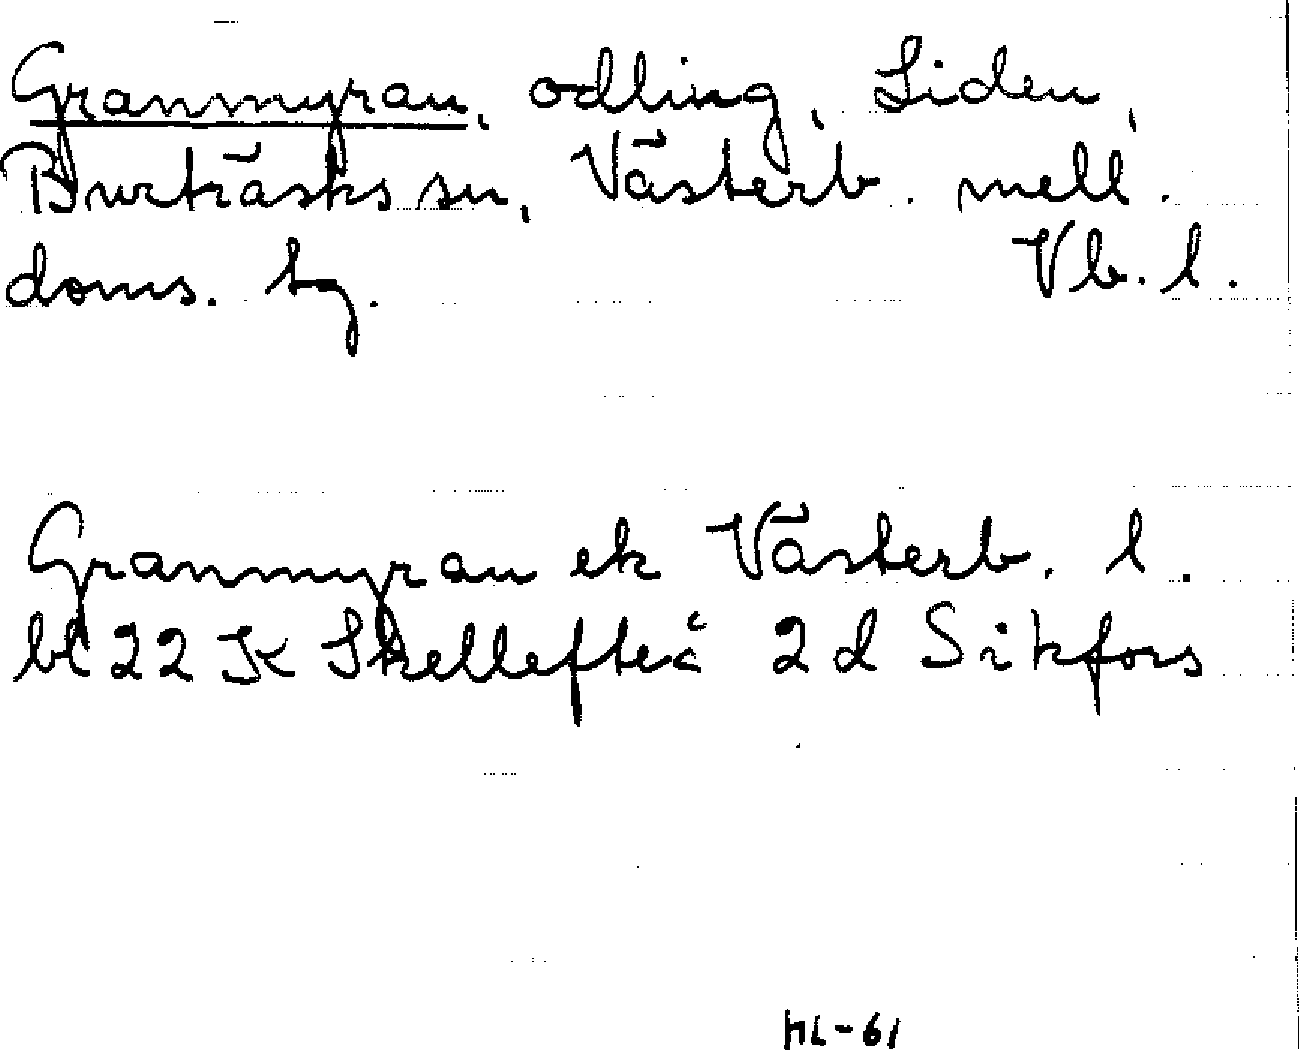 Granmyran, odling, Liden,
Burträsks sn, Västerb. mell.
doms. tg. Vb. l.
Granmyran ek Västerb. l.
bl 22 K Skellefteå 2d Sikfors